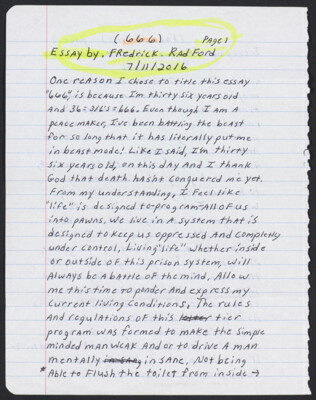 (666) Page 1
Essay by, FRedrick. Radford
7/11/2016
One reason I chose to title this essay
"666," is because I'm thirty six years old
and 36=3/6's=666. Even though I am a
peace maker, I've been battling the beast
for so long that it has literally put me
in beast mode! Like I said, I'm thirty
six years old, on this day And I thank
God that death hasnt conquered me yet.
From my understanding, I Feel like
"life" is designed to program All of us
into pawns. We live in A system that is
designed to keep us oppressed And completly
under control. Living "life" whether inside
or outside of this prison system, will
Always be a battle of the mind. Allow
me this time to ponder And express my
current living conditions. The rules
and regulations of this tier
program was formed to make the simple
minded man weak And or to drive A man
mentally insane. Not being
*Able to Flush the toilet from inside →